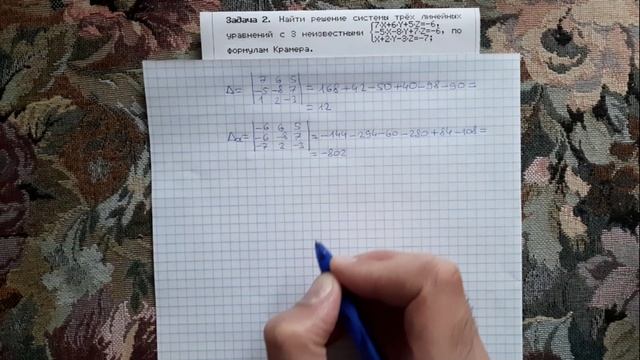 Задача 2. Найти решение системы трёх линейных
уравнений с 3 неизвестными {7·X+6·Y+5·Z=-6, -5·X-8·Y+7·Z=-6, X+2·Y-3·Z=-7; по
формулам Крамера.
Δ= |7 6 5| = 168+42-50+40-98-90=
|-5 -8 7|
|1 2 -3|
= 12
Δx= |-6 6 5| =-144-294-60-280+84-108=
|-6 -8 7|
|-7 2 -3|
= -802